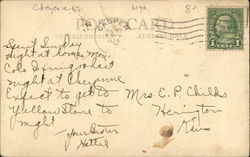 Cheyenne Wyo 8-
POST CARD
CASPER
ADDRESS ONLY
Spent Sunday
night at home, Mon.
Colo Springs last
night at Cheyenne
Expect to get to
Yellowstone to
night
Your Sister
Hattie
Mrs. E. P. Childs
Herington
Kans
1 CENT 1